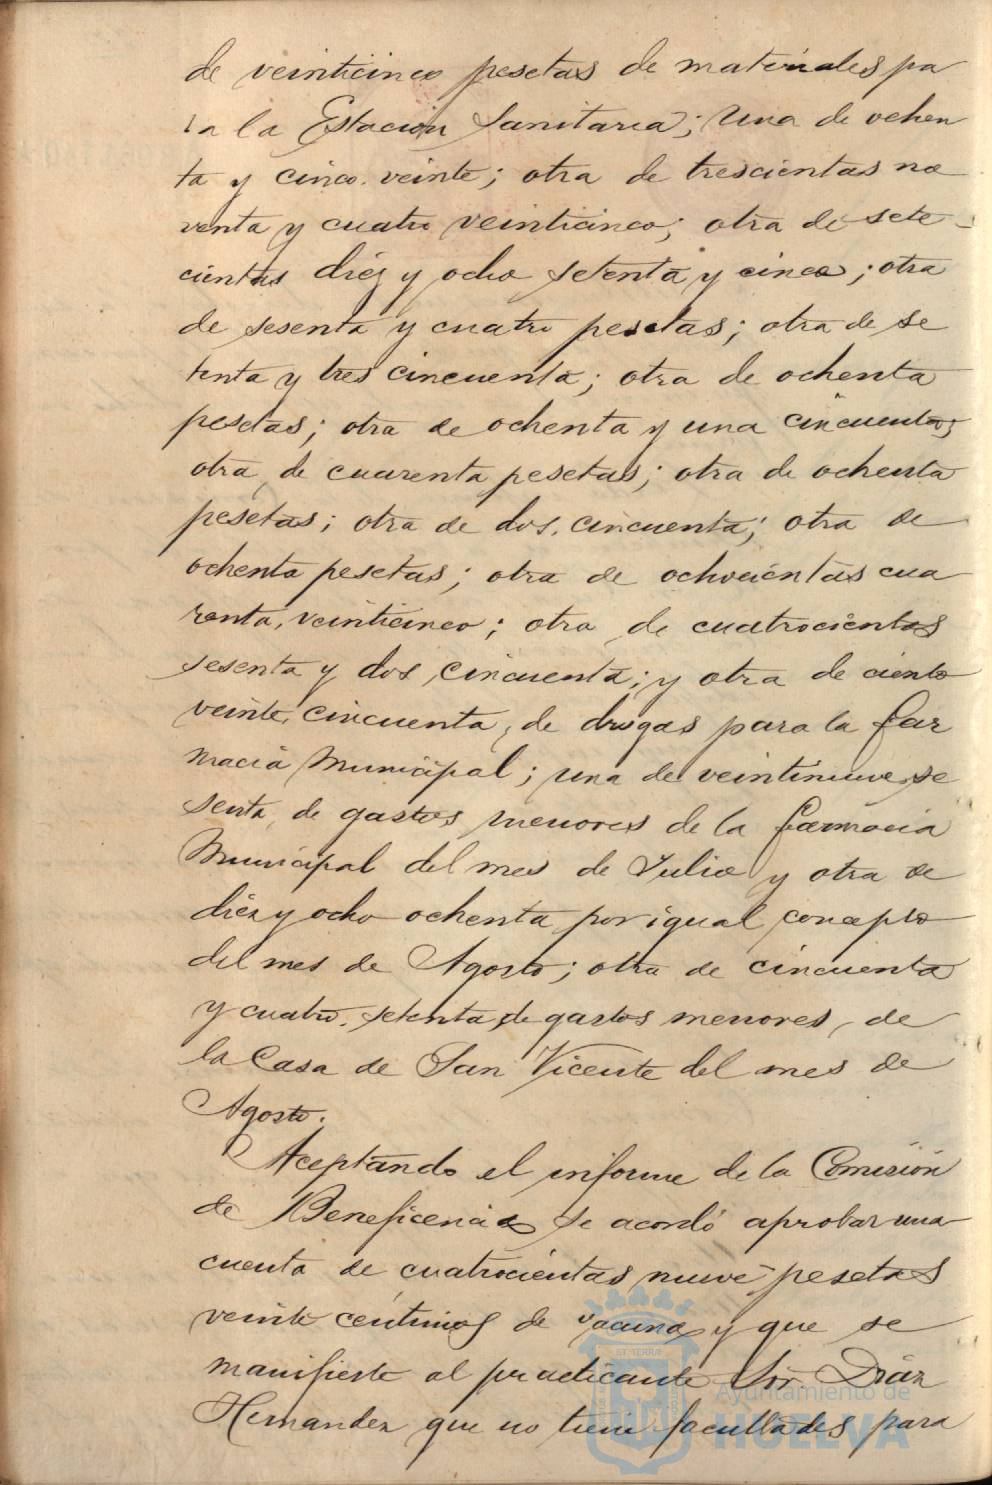 de veinticinco pesetas de materiales pa
ra la Estación Sanitaria; una de ochen
ta y cinco. veinte; otra de trescientas no
venta y cuatro veinticinco; otra de sete-
cientas diez y ocho setenta y cinco; otra
de sesenta y cuatro pesetas; otra de se
tenta y tres cincuenta; otra de ochenta
pesetas; otra de ochenta y una cincuenta;
otra de cuarenta pesetas; otra de ochenta
pesetas; otra de dos. cincuenta; otra de
ochenta pesetas; otra de ochocientas cua
renta, veinticinco; otra de cuatrocientas
sesenta y dos, cincuenta; y otra de ciento
veinte, cincuenta, de drogas para la Far
macia Municipal; una de veintinueve, se
senta, de gastos menores de la Farmacia
Municipal del mes de Julio y otra de
diez y ocho ochenta por igual concepto
del mes de Agosto; otra de cincuenta
y cuatro. setenta, de gastos menores, de
la Casa de San Vicente del mes de
Agosto.
Aceptando el informe de la Comisión
de Beneficencia se acordó aprobar una
cuenta de cuatrocientas nueve pesetas
veinte centimos de vacuna y que se
manifieste al practicante Sor. Díaz
Hernandez que no tiene facultades para
Ayuntamiento de
HUELVA